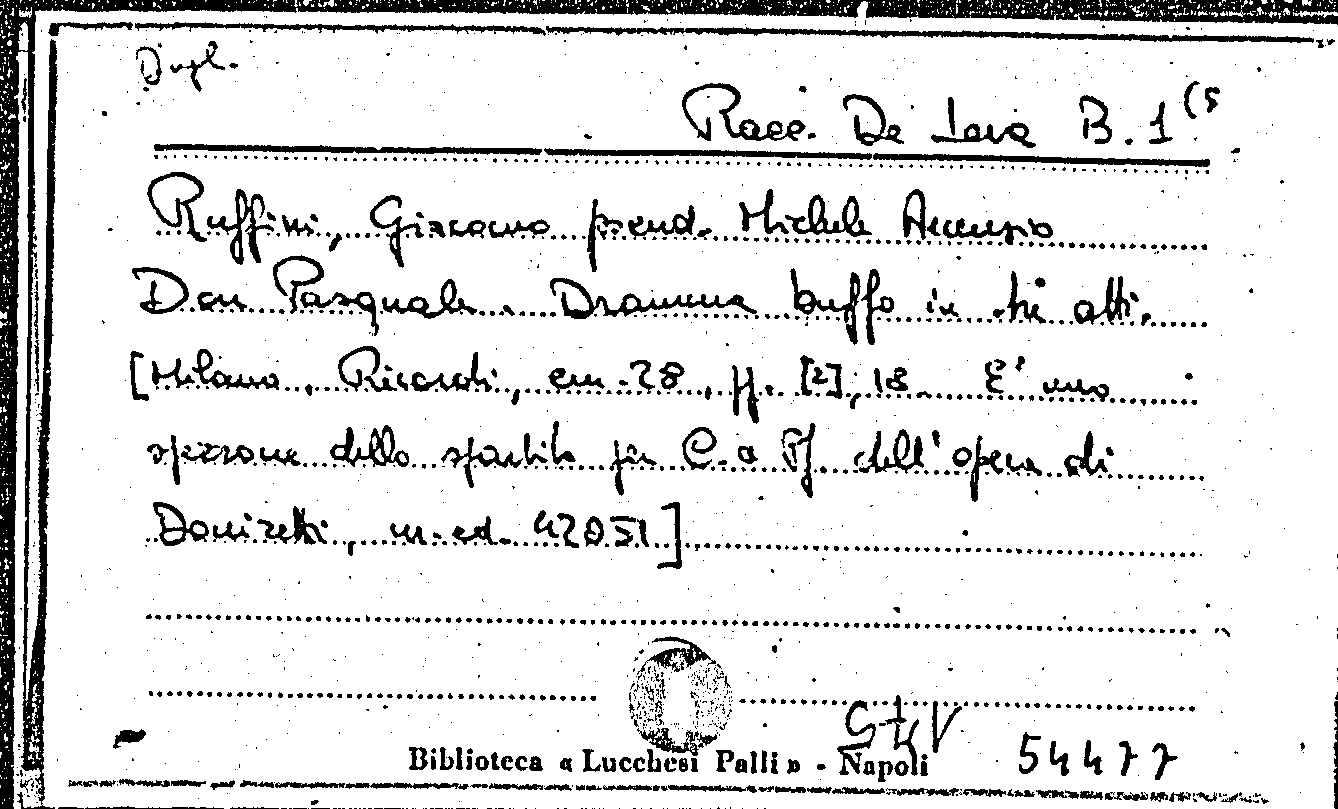 Dupl.
Racc. De Lara B. 1 (5
Ruffini, Giacomo pseud. Michele Accursio
Don Pasquale. Dramma buffo in tre atti.
[Milano, Ricordi, cm. 28, ff. [2], 18. E' uno
spezzone dello spartito per C. a Pf. dell'opera di
Donizetti, n. ed. 42051]
54477
Biblioteca « Lucchesi Palli » - Napoli